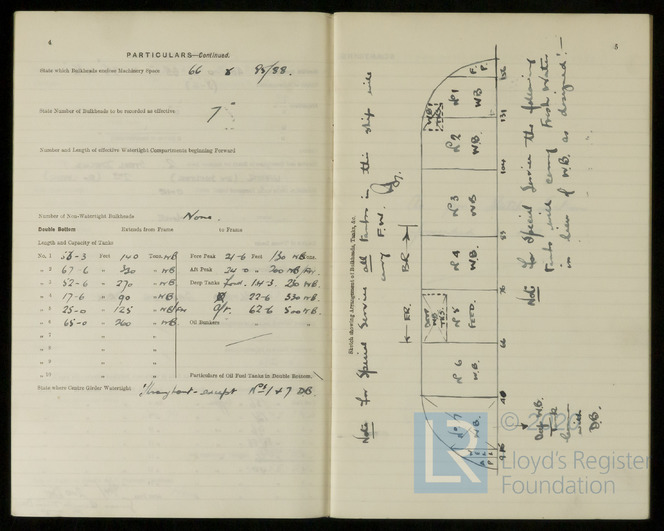 4
PARTICULARS—Continued.
State which Bulkheads enclose Machinery Space 66 & 85/88.
State Number of Bulkheads to be recorded as effective 7
Number and Length of effective Watertight Compartments beginning Forward
Number of Non-Watertight Bulkheads None.
Double Bottom Extends from Frame to Frame
Length and Capacity of Tanks
No. 1 Feet 140 Tons WB Fore Peak 21-6 Feet 130 WB Tons.
" 2 67-6 " 320 " WB Aft Peak 24-0 " 200 WB
" 3 52-6 " 270 " WB Deep Tanks 250 WB
" 4 17-6 " 90 " WB 22-6 330 WB
" 5 25-0 " 125 " WB 62-6 500 WB
" 6 65-0 " 260 " WB Oil Bunkers
" 7
" 8
" 9
" 10 Particulars of Oil Fuel Tanks in Double Bottom.
State where Center Girder Watertight Throughout - except Nos 1 & 7 DB.
5
Note for Special Service all tanks in this ship will carry F.W.
Sketch showing Arrangement of Bulkheads, Tanks, &c.
ER. BR
F.P.
No 1 WB
No 2 W.B.
No 3 W.B.
No 4 W.B.
No 5 FEED.
No 6 W.B.
No 7 W.B.
156
131
104
85
76
66
40
Note for Special Service the following Tanks will carry Fresh Water in lieu of W.B. as designed:-
Deep WB. Tank with D.B.
© 20
LR
Lloyd's Register
Foundation